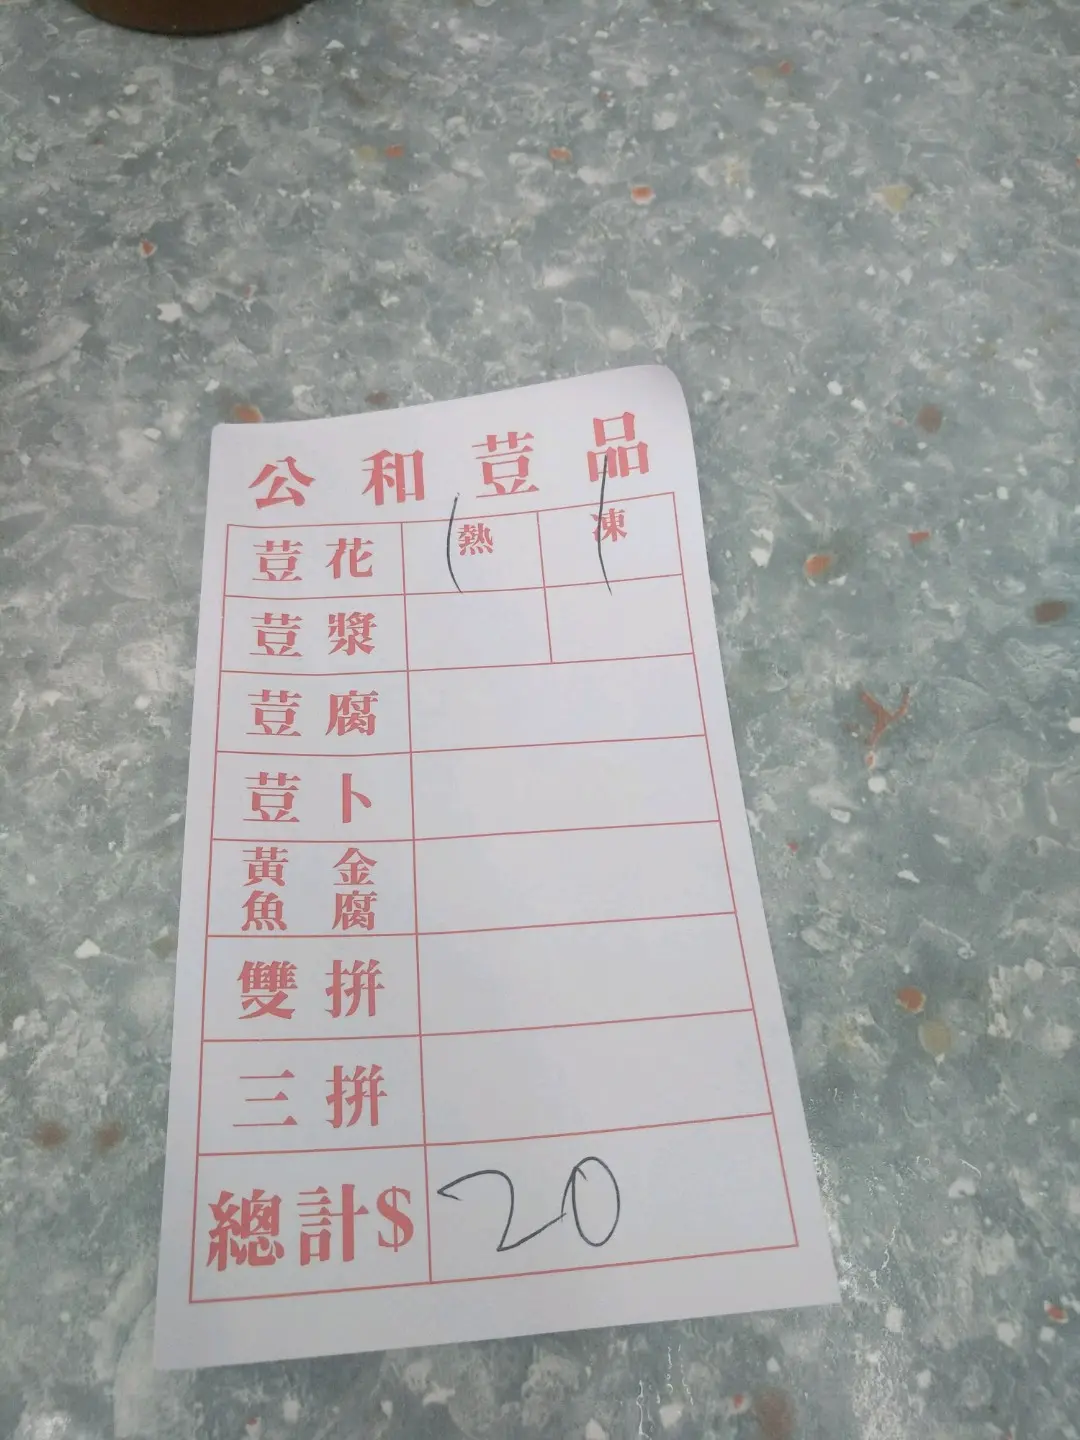 公和荳品
荳花 熱 凍
荳漿
荳腐
荳卜
黃金
魚腐
雙拼
三拼
總計$ 20